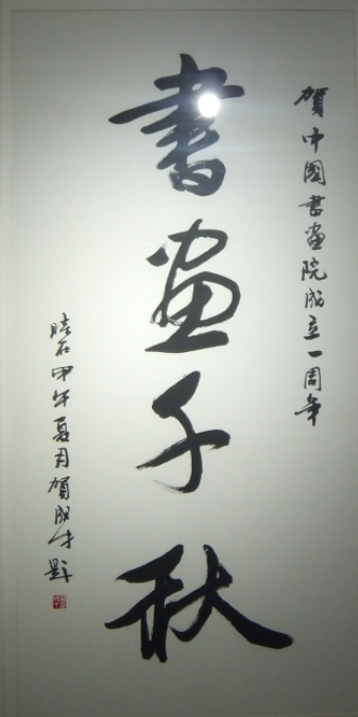 賀中國書畫院成立一周年
書畫千秋
甲午夏月賀成才題